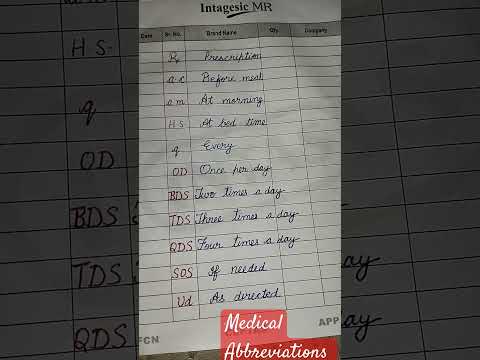 Intagesic MR
Date Sr. No. Brand Name Qty. Company
Rx Prescription
a.c Before meal
a m At morning
H S At bed time
q Every
OD Once per day
BDS Two times a day
TDS Three times a day
QDS Four times a day
SOS If needed
Ud As directed
Medical
Abbreviations
FCN
APP
H S
q
OD
BDS
TDS
QDS
ay
ay